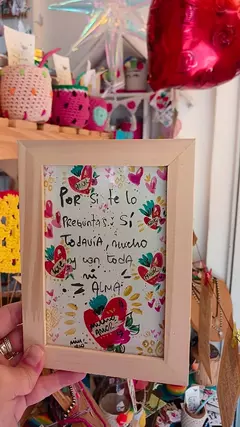 Por si te lo
preguntas: Sí
todavía, mucho
y con toda
mi
ALMA!